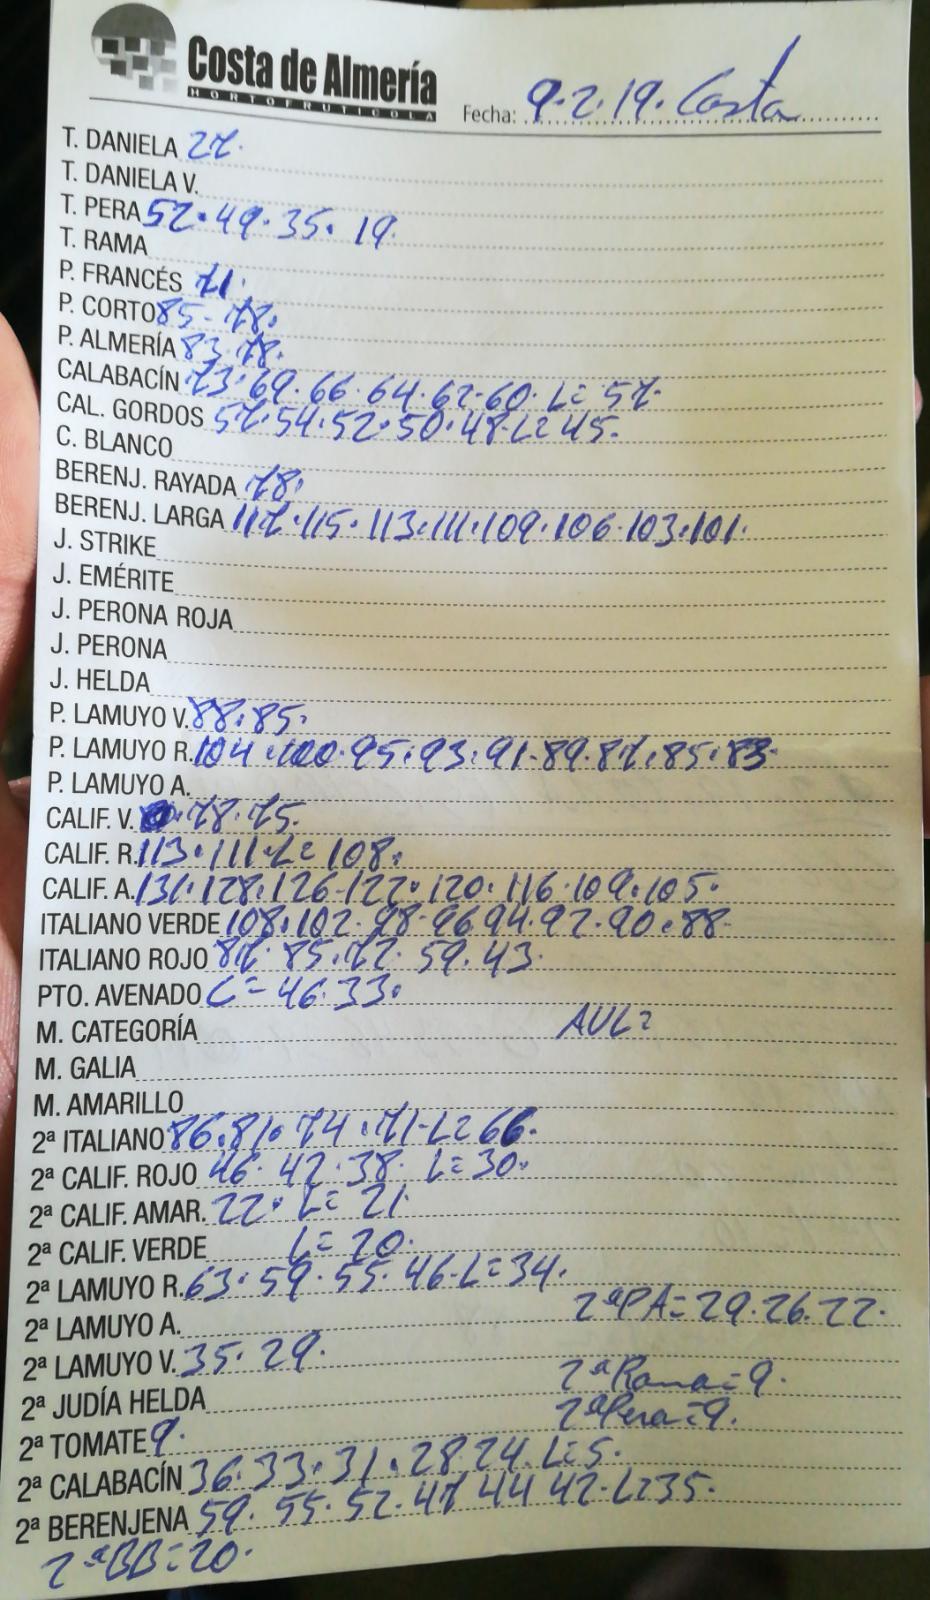 Costa de Almería
HORTOFRUTÍCOLA
Fecha: 9.2.19. Costa
T. DANIELA 27.
T. DANIELA V.
T. PERA 52.49.35.19.
T. RAMA
P. FRANCÉS 71.
P. CORTO 85-78.
P. ALMERÍA 83.78.
CALABACÍN 73.69.66.64.62-60.L=57.
CAL. GORDOS 57.54.52.50.48-L=45.
C. BLANCO
BERENJ. RAYADA 78.
BERENJ. LARGA 117.115.113.111.109.106.103.101.
J. STRIKE
J. EMÉRITE
J. PERONA ROJA
J. PERONA
J. HELDA
P. LAMUYO V. 88.85.
P. LAMUYO R. 104.100.95.93.91-89.87.85.83.
P. LAMUYO A.
CALIF. V. 78.75.
CALIF. R. 113.111.L=108.
CALIF. A. 131.128.126-122.120.116.109.105.
ITALIANO VERDE 108.102.98-96 94.92.90.88.
ITALIANO ROJO 87.85.72.59.43.
PTO. AVENADO C=46.33.
M. CATEGORÍA AUL=
M. GALIA
M. AMARILLO
2ª ITALIANO 86.81.74.71-L=66.
2ª CALIF. ROJO 46.42.38. L=30.
2ª CALIF. AMAR. 22. L=21
2ª CALIF. VERDE L=20.
2ª LAMUYO R. 63.59.55.46-L=34.
2ªPA=29.26.22.
2ª LAMUYO A.
2ª LAMUYO V. 35.29.
2ªRama=9.
2ª JUDÍA HELDA
2ªPera=9.
2ª TOMATE 9.
2ª CALABACÍN 36.33.31.28 24.L=5.
2ª BERENJENA 59.55.52.47 44 42.L=35.
2ªBB=20.